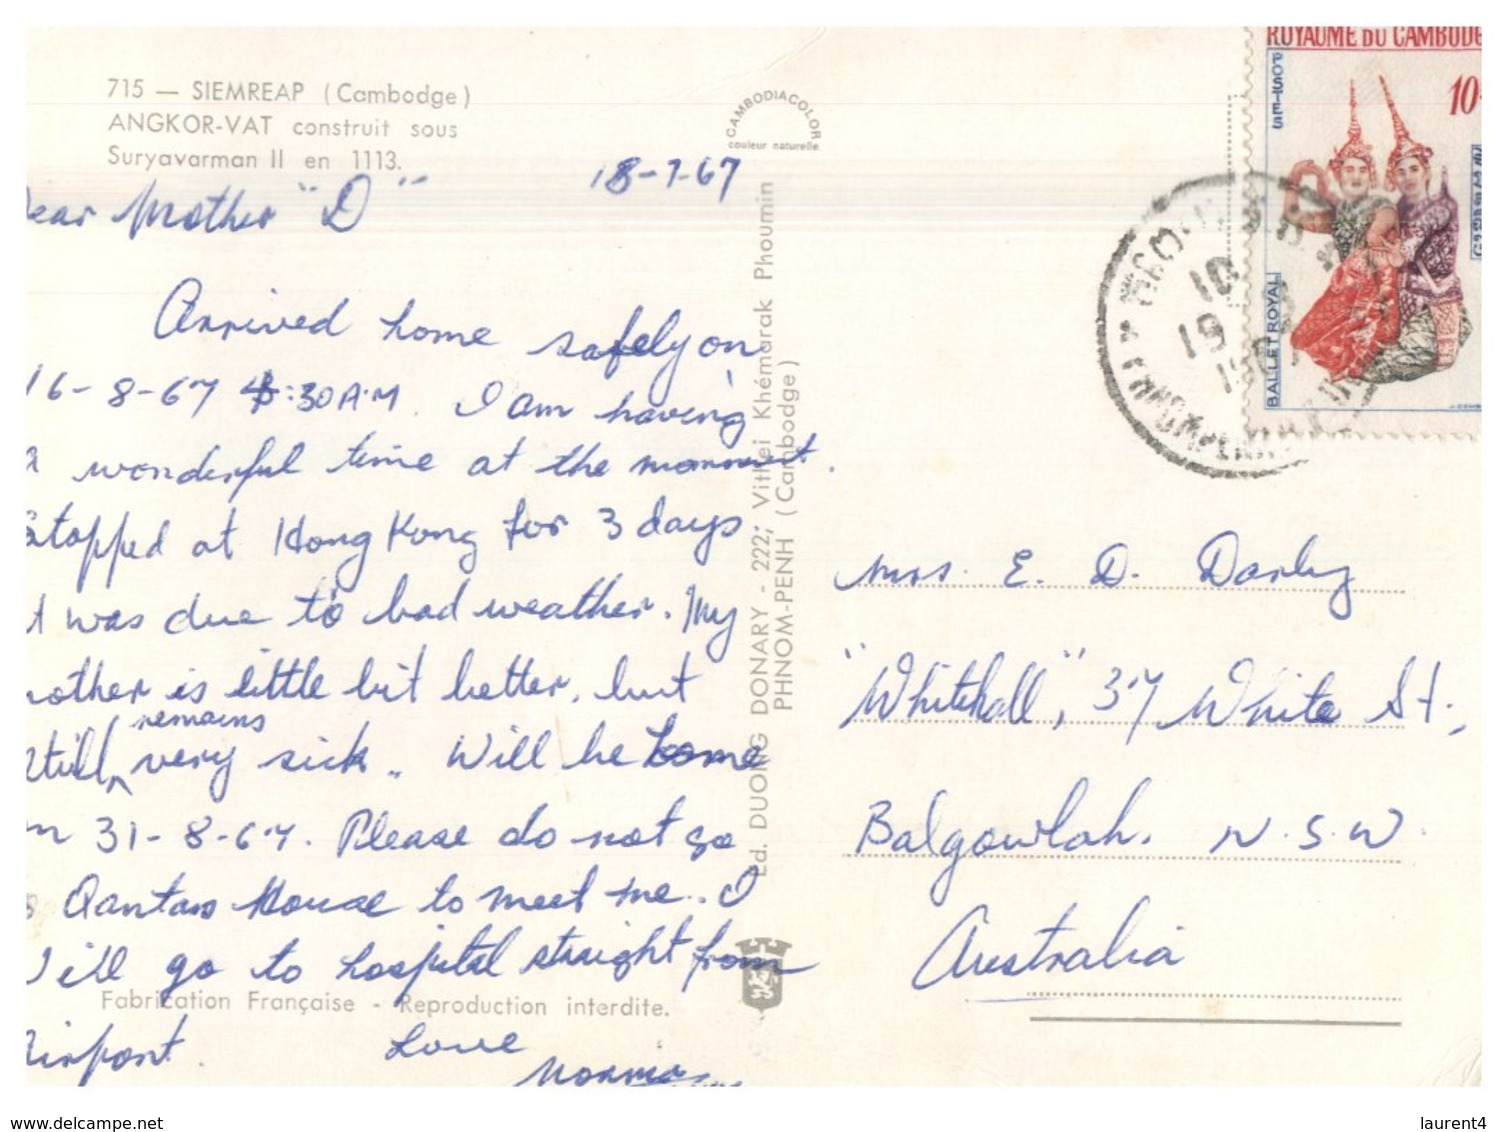 715 — SIEMREAP (Cambodge)
ANGKOR-VAT construit sous
Suryavarman II en 1113.
CAMBODIACOLOR
couleur naturelle.
18-7-67
ear Mother "D"
Arrived home safely on
16-8-67 :30 A.M. I am having
a wonderful time at the moment.
Stopped at Hong Kong for 3 days
t was due to bad weather. My
mother is little bit better, but
still remains very sick. Will be home
on 31-8-67. Please do not go
Qantas House to meet me. I
Will go to hospital straight from
airport. Love
Ed. DUONG DONARY - 222, Vithei Khémarak Phoumin
PHNOM-PENH (Cambodge)
Fabrication Française - Reproduction interdite.
ROYAUME DU CAMBODGE
POSTES
10
BALLET ROYAL
10
19
Mrs. E. D. Darby
"Whitehall", 37 White St.,
Balgowlah. N.S.W.
Australia
www.delcampe.net
laurent4